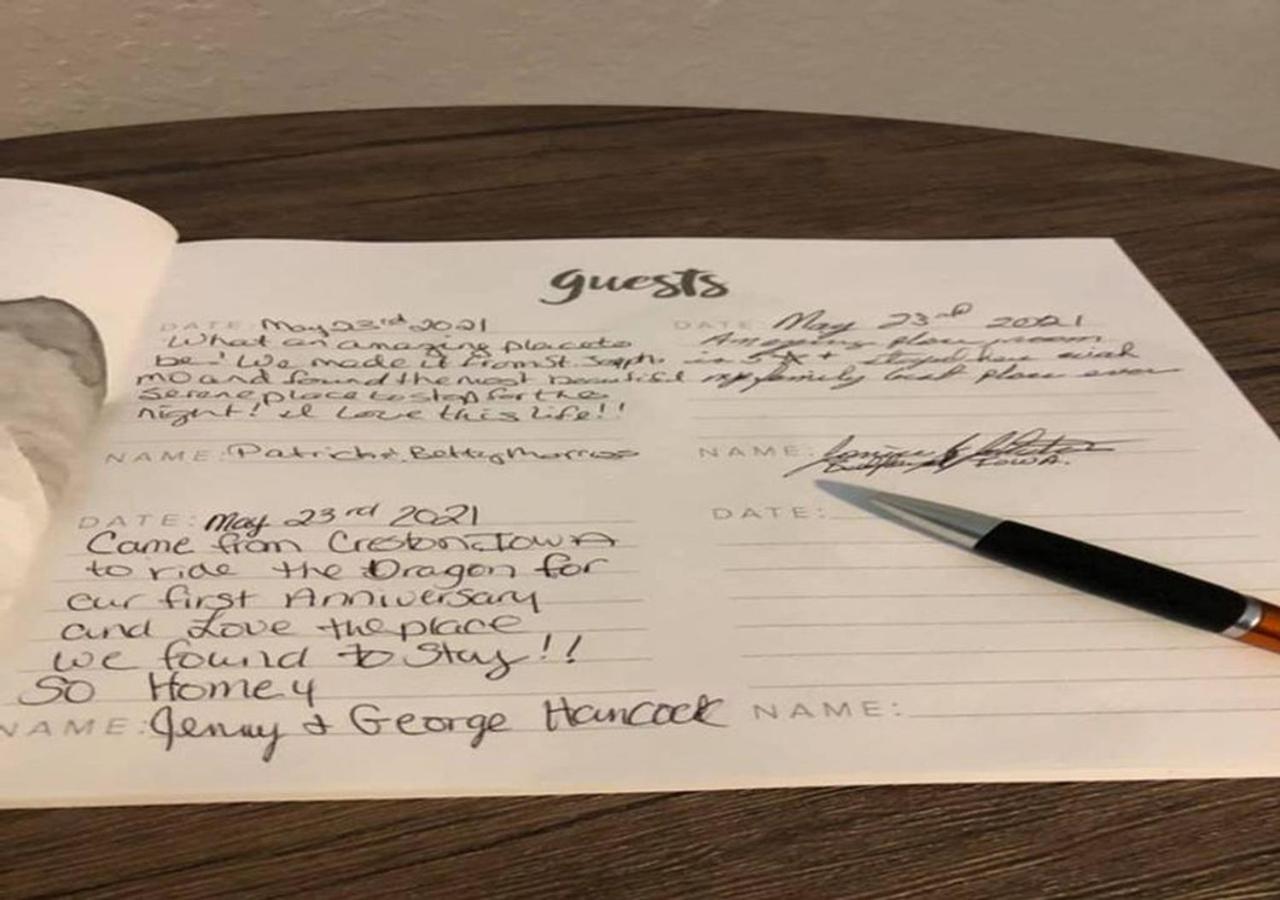 guests
DATE: May 23rd 2021
What an amazing place to
be! We made it from St. Joseph
MO and found the most beautiful
serene place to stop for the
night! I Love this life!!
NAME: Patrick & Betty
DATE: May 23rd 2021
in 5☆ + stayed here with
my family best place ever
NAME:
IOWA.
DATE: May 23rd 2021
Came from Creston, IOWA
to ride the Dragon for
our first Anniversary
and Love the place
we found to Stay!!
So Homey
NAME: Jenny & George Hancock
DATE:
NAME: